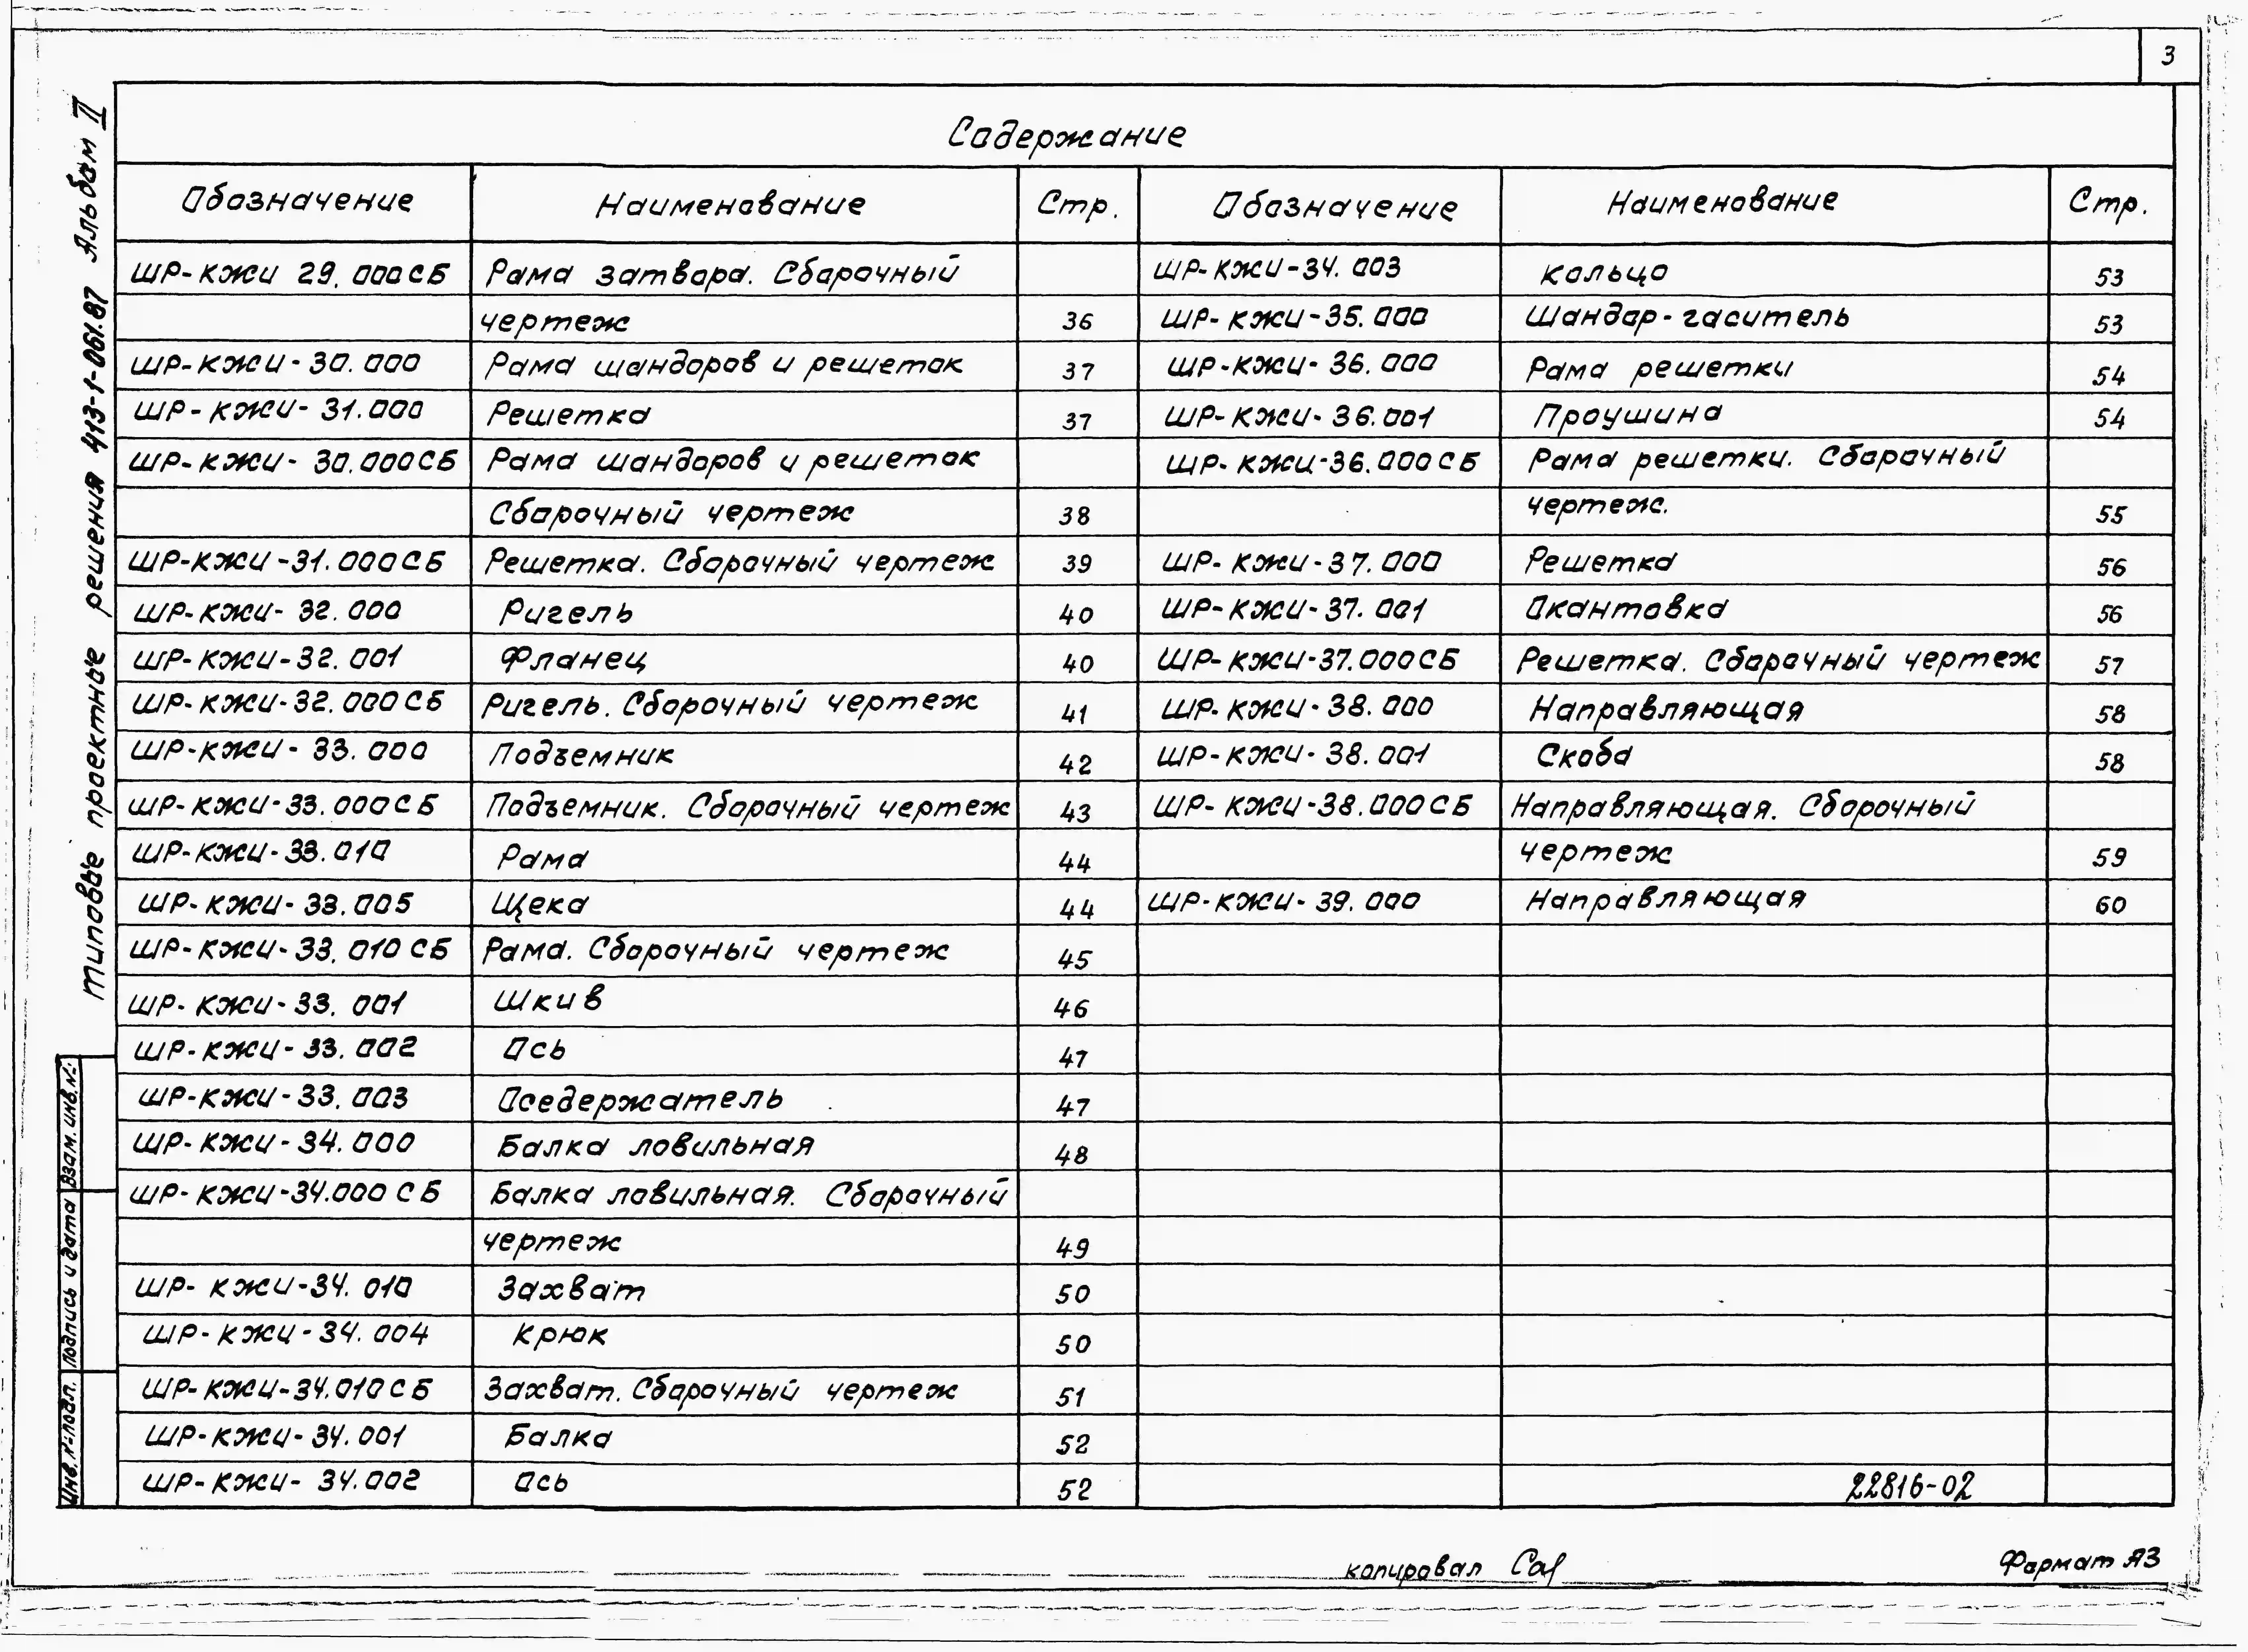 3
Содержание
Обозначение Наименование Стр.
ШР-КЖИ 29.000СБ Рама затвора. Сборочный
чертеж 36
ШР-КЖИ-30.000 Рама шандоров и решеток 37
ШР-КЖИ-31.000 Решетка 37
ШР-КЖИ-30.000СБ Рама шандоров и решеток
Сборочный чертеж 38
ШР-КЖИ-31.000СБ Решетка. Сборочный чертеж 39
ШР-КЖИ-32.000 Ригель 40
ШР-КЖИ-32.001 Фланец 40
ШР-КЖИ-32.000СБ Ригель. Сборочный чертеж 41
ШР-КЖИ-33.000 Подъемник 42
ШР-КЖИ-33.000СБ Подъемник. Сборочный чертеж 43
ШР-КЖИ-33.010 Рама 44
ШР-КЖИ-33.005 Щека 44
ШР-КЖИ-33.010СБ Рама. Сборочный чертеж 45
ШР-КЖИ-33.001 Шкив 46
ШР-КЖИ-33.002 Ось 47
ШР-КЖИ-33.003 Оседержатель 47
ШР-КЖИ-34.000 Балка ловильная 48
ШР-КЖИ-34.000СБ Балка ловильная. Сборочный
чертеж 49
ШР-КЖИ-34.010 Захват 50
ШР-КЖИ-34.004 Крюк 50
ШР-КЖИ-34.010СБ Захват. Сборочный чертеж 51
ШР-КЖИ-34.001 Балка 52
ШР-КЖИ-34.002 Ось 52
Обозначение Наименование Стр.
ШР-КЖИ-34.003 Кольцо 53
ШР-КЖИ-35.000 Шандор-гаситель 53
ШР-КЖИ-36.000 Рама решетки 54
ШР-КЖИ-36.001 Проушина 54
ШР-КЖИ-36.000СБ Рама решетки. Сборочный
чертеж. 55
ШР-КЖИ-37.000 Решетка 56
ШР-КЖИ-37.001 Окантовка 56
ШР-КЖИ-37.000СБ Решетка. Сборочный чертеж 57
ШР-КЖИ-38.000 Направляющая 58
ШР-КЖИ-38.001 Скоба 58
ШР-КЖИ-38.000СБ Направляющая. Сборочный
чертеж 59
ШР-КЖИ-39.000 Направляющая 60
22816-02
Типовые проектные решения 413-1-061.87 Альбом II
Взам. инв. №
Подпись и дата
Инв. № подл.
копировал
Формат А3